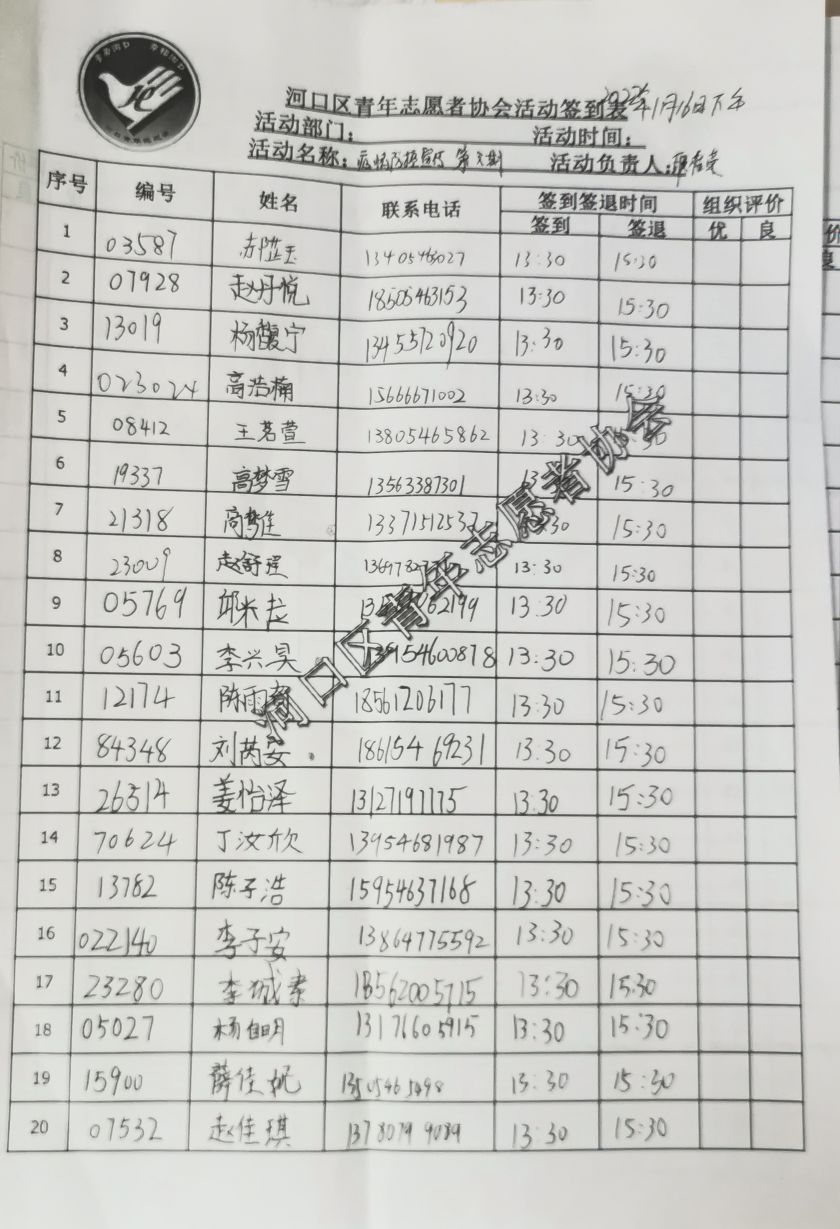 河口区青年志愿者协会活动签到表 2022年1月16日下午
活动部门： 活动时间：
活动名称：疫情防控宣传 第 期 活动负责人：
序号 编号 姓名 联系电话 签到签退时间 组织评价
签到 签退 优 良
1 03587 郝芷玉 13405463027 13:30 15:30
2 07928 赵丹悦 18605463153 13:30 15:30
3 13019 杨馥宁 13455720920 13:30 15:30
4 023024 高浩楠 15666671002 13:30 15:30
5 08412 王茗萱 13805465862 13:30
6 19337 高梦雪 13563387301 15:30
7 21318 1337151253 15:30
8 23009 赵舒瑶 13:30 15:30
9 05769 邱米拉 13:30 15:30
10 05603 李兴昊 13:30 15:30
11 12174 陈雨 18561206177 13:30 15:30
12 84348 刘芮安 18615469231 13:30 15:30
13 26514 姜怡泽 13127197175 13:30 15:30
14 70624 丁汝欣 13954681987 13:30 15:30
15 13782 陈子浩 15954637168 13:30 15:30
16 022140 李子安 13864775592 13:30 15:30
17 23280 李 18562005715 13:30 15:30
18 05027 杨 13176605915 13:30 15:30
19 15900 薛佳妮 13:30 15:30
20 07532 赵佳琪 13780799089 13:30 15:30
河口区青年志愿者协会